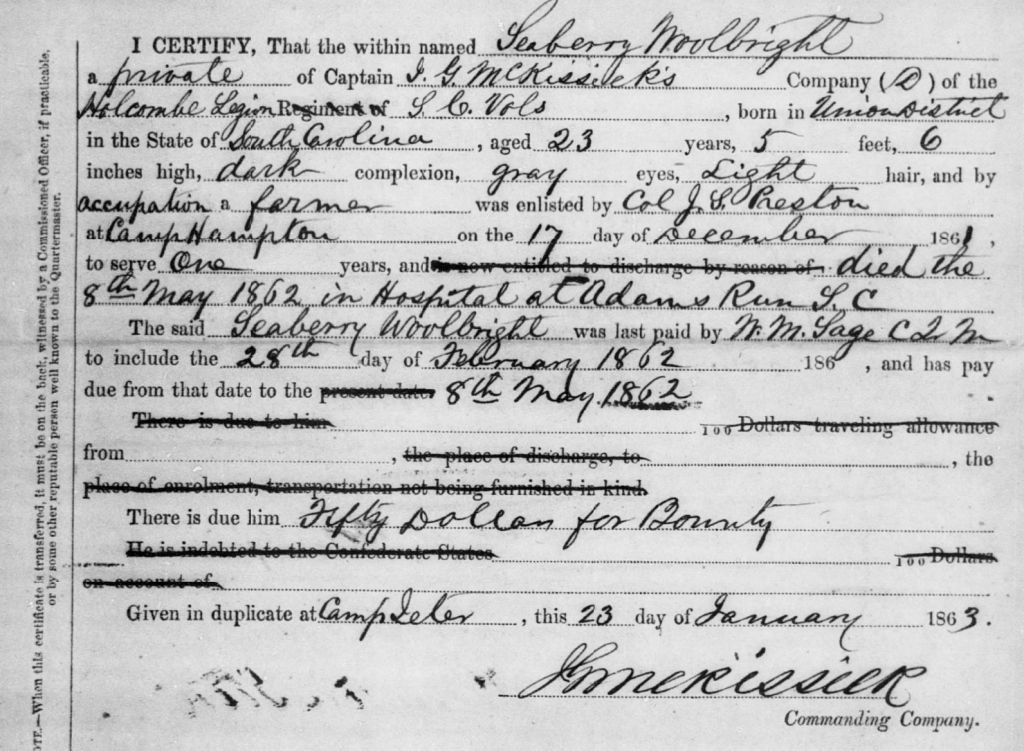 I CERTIFY, That the within named Seaberry Woolbright
a private of Captain J. G. McKissick's Company (D) of the
Holcombe Legion Regiment of S. C. Vols , born in Union District
in the State of South Carolina , aged 23 years, 5 feet, 6
inches high, dark complexion, gray eyes, Light hair, and by
occupation a farmer was enlisted by Col J. S. Preston
at Camp Hampton on the 17 day of December 1861 ,
to serve One years, and is now entitled to discharge by reason of died the
8th May 1862 in Hospital at Adams Run S. C
The said Seaberry Woolbright was last paid by W. M. Sage C Q M
to include the 28th day of February 1862 186 , and has pay
due from that date to the present date. 8th May 1862
There is due to him 100 Dollars traveling allowance
from , the place of discharge, to , the
place of enrolment, transportation not being furnished in kind.
There is due him Fifty Dollars for Bounty
He is indebted to the Confederate States 100 Dollars
on account of
Given in duplicate at Camp Jeter , this 23 day of January 1863.
J G McKissick
Commanding Company.
OTE.—When this certificate is transferred, it must be on the back, witnessed by a Commissioned Officer, if practicable,
or by some other reputable person well known to the Quartermaster.